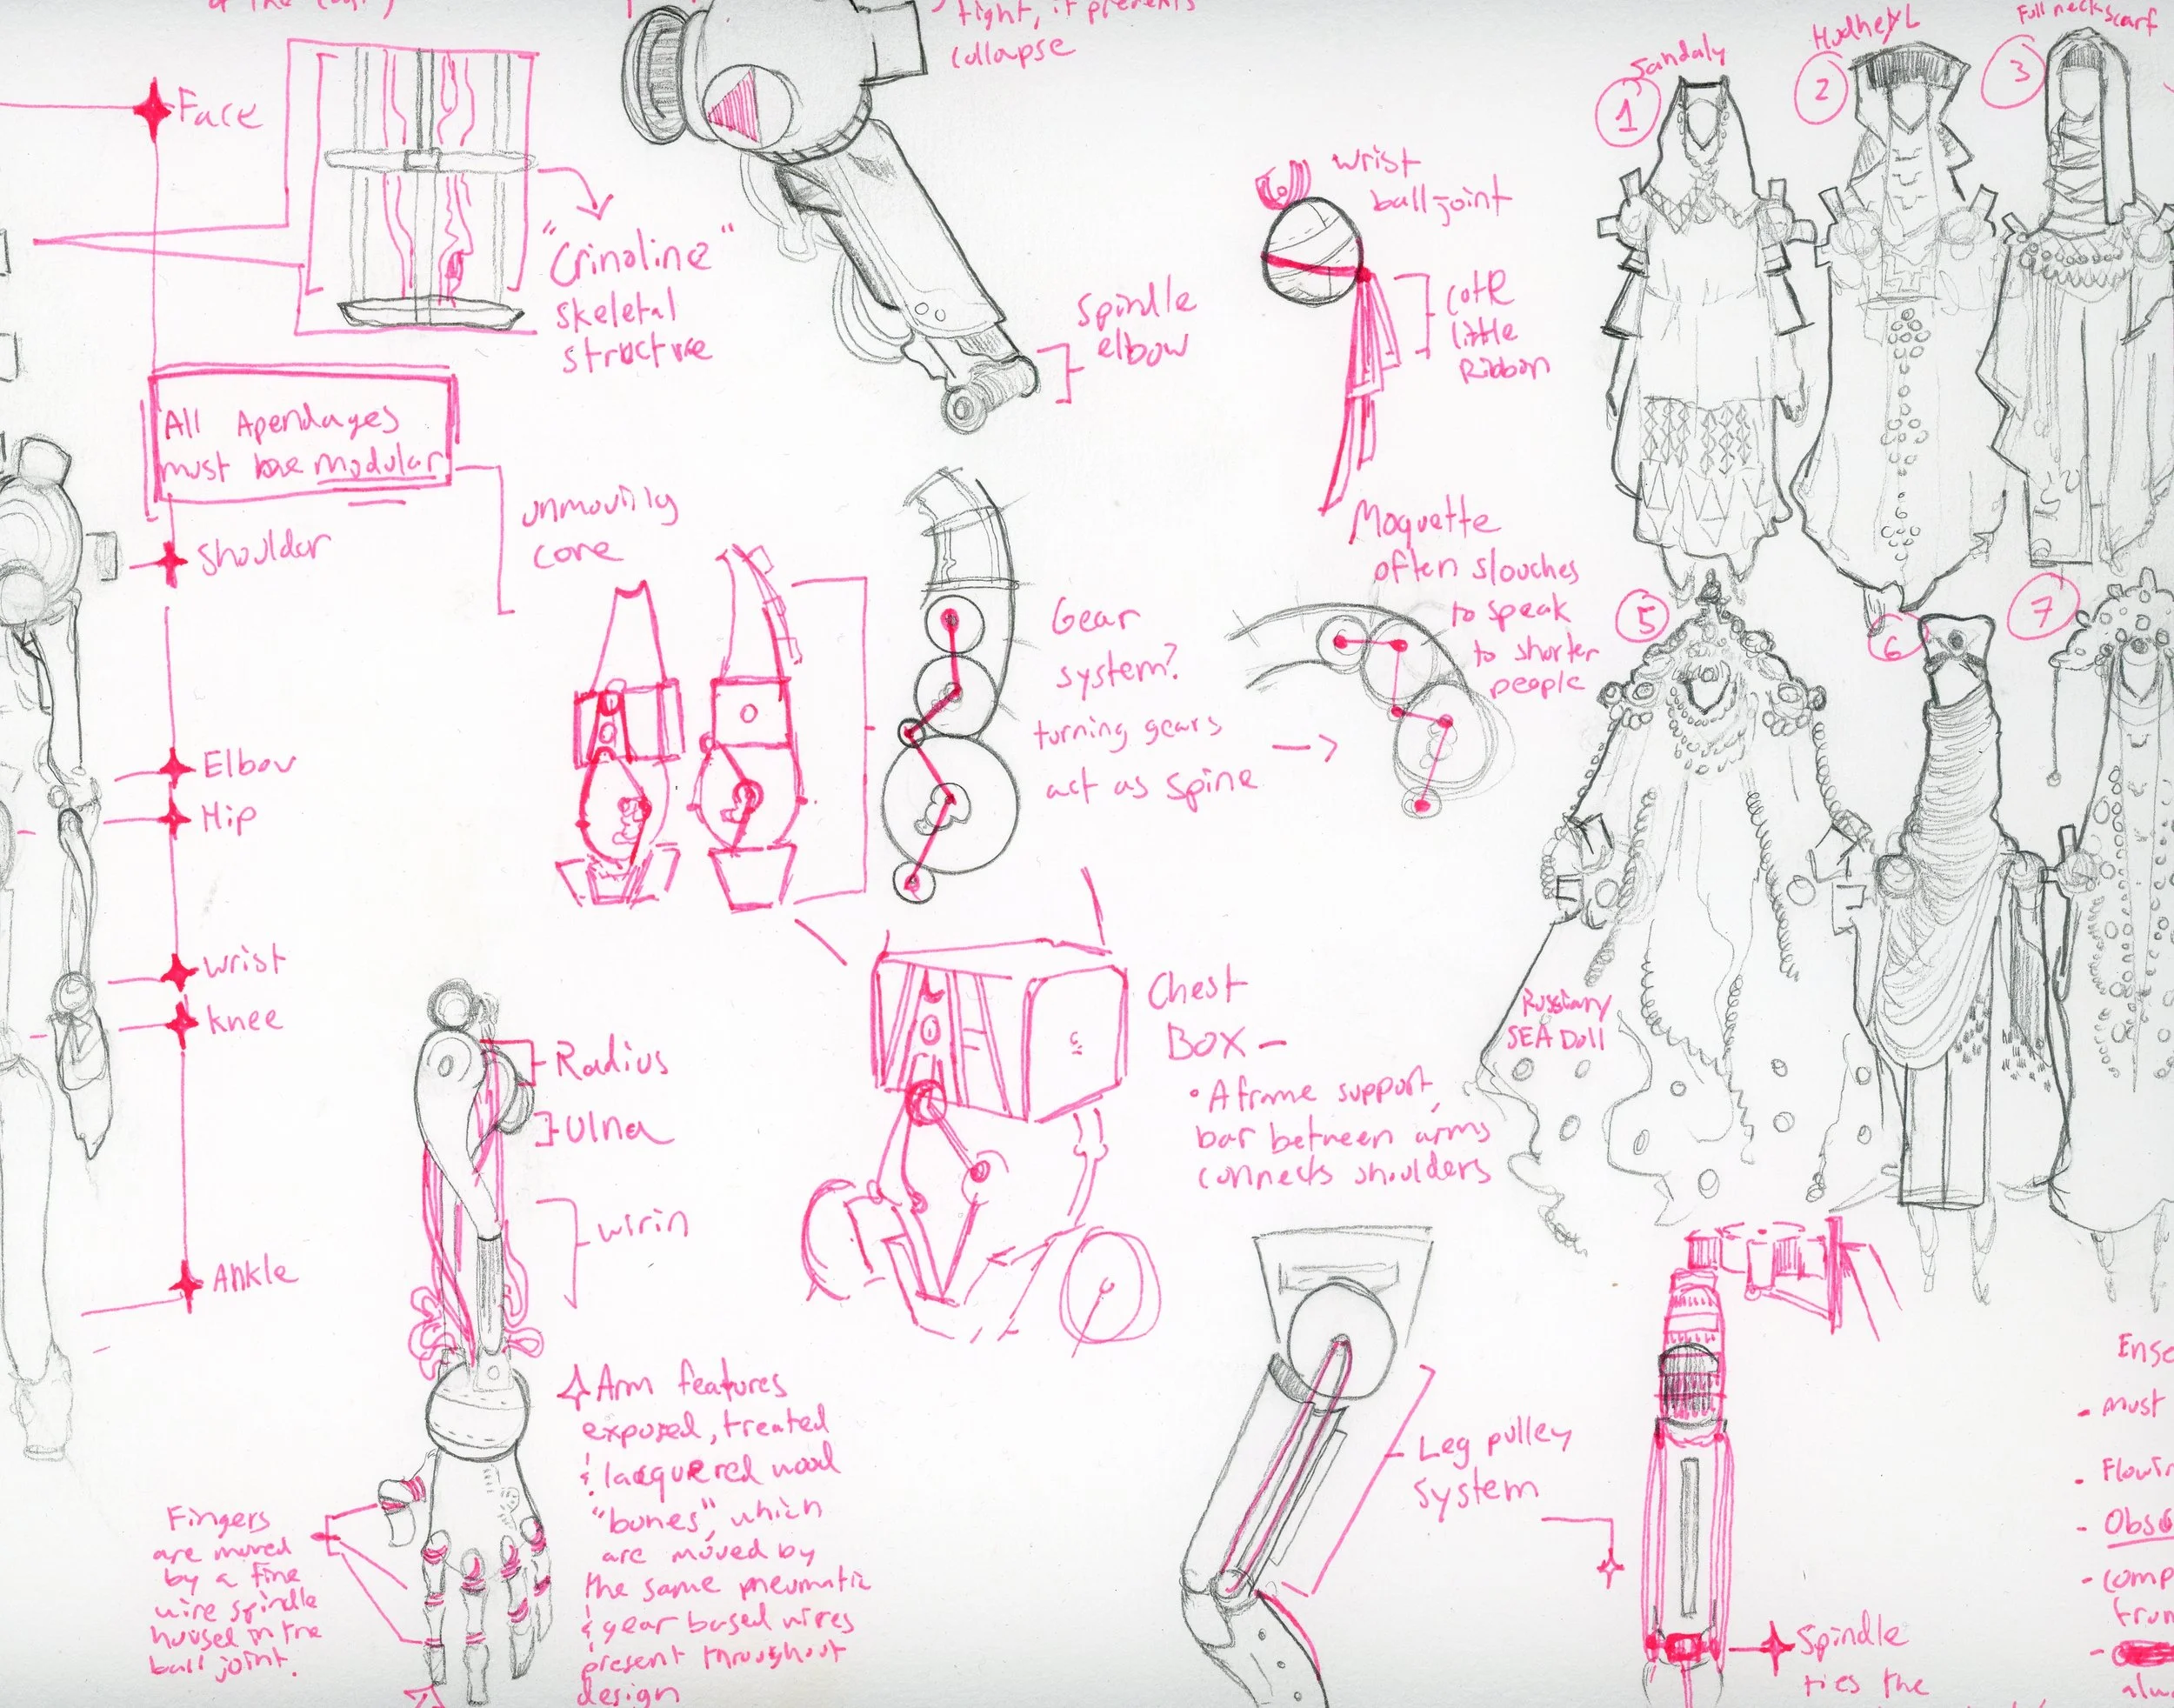 tight, it prevents
collapse
Face
"Crinoline"
skeletal
structure
All Apendages
must be modular
Shoulder
Elbow
Hip
wrist
knee
Ankle
unmoving
core
Spindle
elbow
wrist
ball joint
little
Ribbon
Moquette
often slouches
to speak
to shorter
people
Gear
system?
turning gears
act as spine
Chest
BOX -
• A frame support,
bar between arms
connects shoulders
Radius
Ulna
wirin
Arm features
exposed, treated
& lacquered wood
"bones", which
are moved by
the same pneumatic
& gear based wires
present throughout
design
Fingers
are moved
by a fine
wire spindle
housed in the
ball joint.
Leg pulley
system
Spindle
ties the
1
Sandaly
2
3
Full neck scarf
5
SEA Doll
6
7
Ense
- must
- Flowin
- Obsc
- comp
from